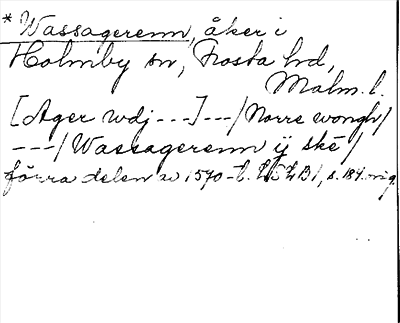 * Wassagerenn, åker i
Holmby sn, Frosta hd,
Malm. l.
[Ager wdj ---] ---/Norre wongh/
---/Wassagerenn ij ske/
förra delen av 1570-t. B1, s. 184. orig.